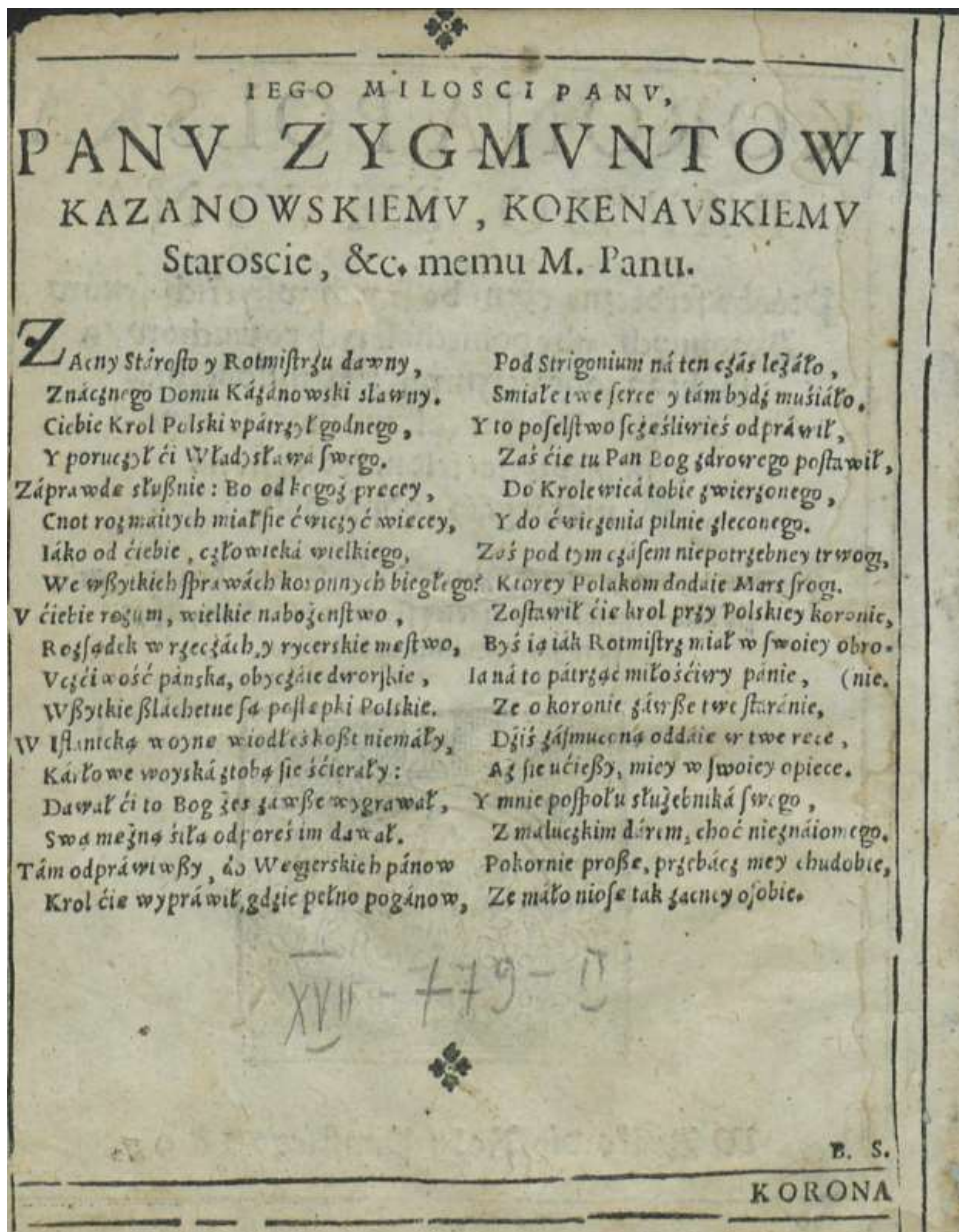 IEGO MILOSCI PANV,
PANV ZYGMVNTOWI
KAZANOWSKIEMV, KOKENAVSKIEMV
Staroscie, &c. memu M. Panu.
ZAcny Stárosto y Rotmiſtrzu dawny,
Znácznego Domu Kázánowski sławny.
Ciebie Krol Polski vpátrzył godnego,
Y poruczył ći Władysłáwá ſwego.
Záprawdę słußnie: Bo od kogoż prećey,
Cnot rozmáitych miał ſie ćwiczyć więcey,
Iáko od ćiebie, człowieká wielkiego,
We wßytkich ſpráwách koronnych biegłego?
V ćiebie rozum, wielkie nabożeńſtwo,
Rozſądek w rzeczách, y rycerskie męſtwo,
Vczćiwość pánska, obyczáie dworſkie,
Wßytkie ßláchetne ſą poſtępki Polskie.
W Iflantcką woynę wiodłeś koßt niemáły,
Kárłowe woyská ztobą ſie śćieráły:
Dawał ći to Bog żeś záwße wygrawał,
Swą mężną śiłą odporeś im dawał.
Tám odpráwiwßy, do Węgierskich pánow
Krol ćię wypráwił, gdzie pełno pogánow,
Pod Strigonium ná ten czás leżáło,
Smiałe twe ſerce y tám bydź muśiáło.
Y to poſelſtwo ſczęśliwieś odpráwił,
Záś ćię tu Pan Bog zdrowego poſtawił,
Do Krolewicá tobie zwierzonego,
Y do ćwiczenia pilnie zleconego.
Záś pod tym czáſem niepotrzebney trwogi,
Ktorey Polakom dodaie Mars ſrogi.
Zoſtawił ćię krol przy Polskiey koronie,
Byś ią iák Rotmiſtrz miał w ſwoiey obro-
Ia ná to pátrząc miłośćiwy pánie, (nie.
Ze o koronie záwße twe ſtáránie,
Dźiś záſmuconą oddáię w twe ręce,
Aż ſie ućießy, miey w ſwoiey opiece.
Y mnie poſpołu służebniká ſwego,
Z maluczkim dárem, choć nieznáiomego.
Pokornie proßę, przebácz mey chudobie,
Ze máło nioſę tak zacney oſobie.
XVII - 779 - II
B. S.
KORONA